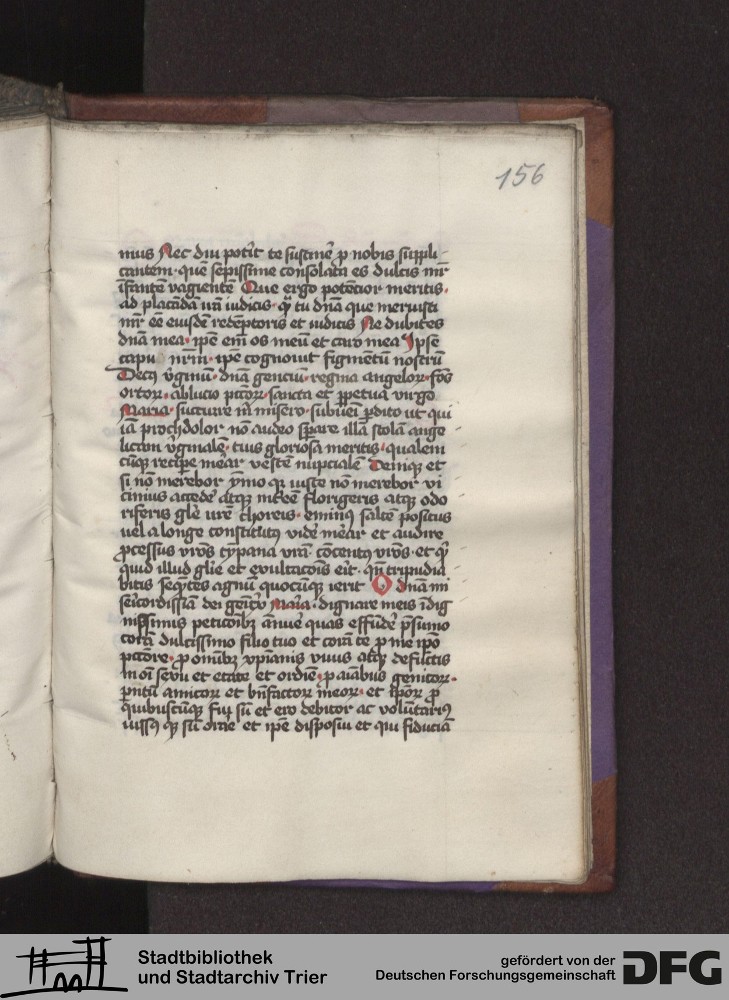 156
mus Nec diu potīt te sustinē p nobis suppli
cantem · quē sepissime consolata es dulcis mr̄
īfantē vagientē Que ergo potēcior meritis ·
ad placādā irā iudicis · q̄ tu dn̄a que meruisti
mr̄ ēē eiusdē redēptoris et iudicis Ne dubites
dn̄a mea · ipē em̄ os meū et caro mea Ipse
capu nr̄m · ipē cognouit figmētū nostrū
Decꝰ v̄ginū · dn̄a genciū · regina angeloꝝ · fōs
ortoꝝ · ablucio pctoꝝ · sancta et ꝑpetua virgo
Maria · succurre m̄ misero · subūei ꝑdito ut qui
iā prochdolor nō audeo sꝑare illā stolā ange
licam v̄ginalē · tuis gloriosa meritis · qualem
cūqꝫ recipe mear vestē nupcialē Deniqꝫ et
si nō merebor ymo qꝫ iuste nō merebor vi
cinius accedē atqꝫ īt̄eē florigeris atqꝫ odo
riferis gl̄e vr̄e choreis · eminꝰ saltē positus
uel a longe constitutꝰ vidē mear et audire
ꝓcessus vr̄os tympana vr̄a cōcentꝰ vr̄os · et q̄
quid illud gl̄ie et exultacōis erit · qn̄ tripudia
bitis seqn̄tes agnū quocūqꝫ ierit O dn̄a mi
sericordissīa dei genitͥx Maria · dignare meis īdig
nissimis peticōibꝫ ānuē quas effūdē p̄sumo
corā dulcissimo filio tuo et corā te p me ipō
pctōre · ꝓ omībꝫ xp̄ianis viuis atqꝫ defūctis
in oī sexu et etate et ordīe · ꝓ aīabus genitoꝝ ·
pn̄tū amicoꝝ et bn̄factoꝝ meoꝝ · et ip̄oꝝ ꝓ
quibuscūqꝫ fui sū et ero debitor ac volūtariꝰ
iussꝰ qꝫ sū orāē et ipē disposui et qui fiduciā
Stadtbibliothek
und Stadtarchiv Trier
gefördert von der
Deutschen Forschungsgemeinschaft
DFG